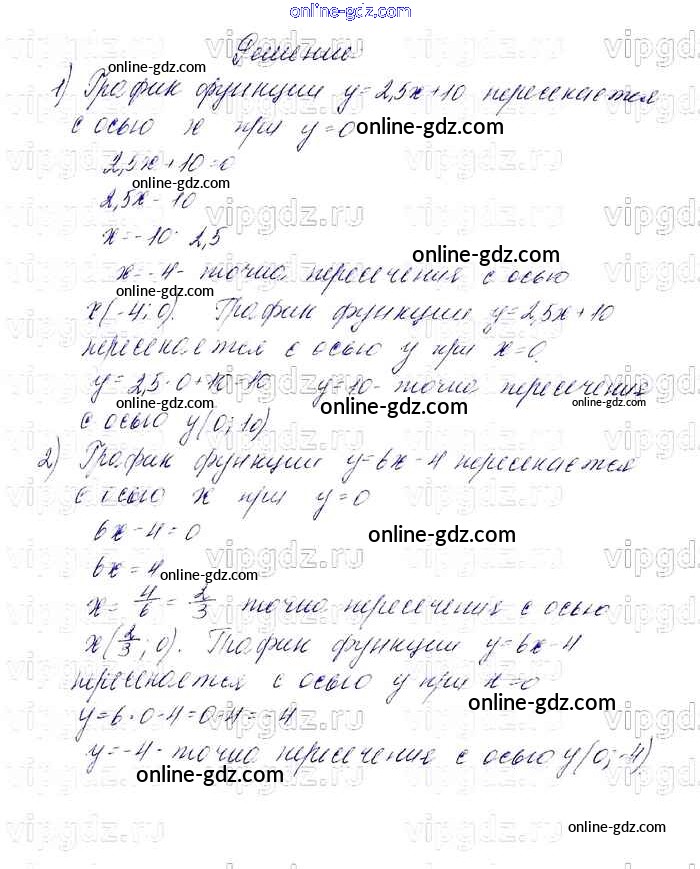 online-gdz.com
Решение
1) График функции y=2,5x+10 пересекается
с осью x при y=0
online-gdz.com
2,5x+10=0
online-gdz.com
2,5x-10
x=-10:2,5
online-gdz.com
x=-4- точка пересечения с осью
online-gdz.com
x(-4;0). График функции y=2,5x+10
пересекается с осью y при x=0
y=2,5·0+10=10 y=10- точка пересечения
online-gdz.com
online-gdz.com
online-gdz.com
с осью y(0;10)
2) График функции y=6x-4 пересекается
с осью x при y=0
6x-4=0
online-gdz.com
6x=4
online-gdz.com
x=4/6=2/3 точка пересечения с осью
x(2/3;0). График функции y=6x-4
пересекается с осью y при x=0
online-gdz.com
y=6·0-4=0-4=-4
y=-4- точка пересечения с осью y(0;-4)
online-gdz.com
online-gdz.com
vipgdz.ru